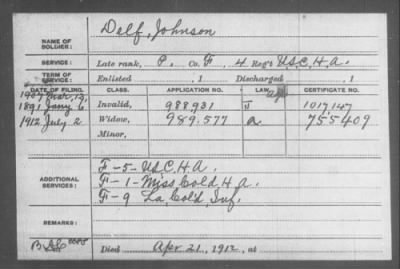 NAME OF SOLDIER: Delf, Johnson
SERVICE: Late rank, P. Co. F, 4 Reg't U.S.C.H.A.
TERM OF SERVICE: Enlisted , 1 Discharged , 1
DATE OF FILING. CLASS. APPLICATION NO. LAW. CERTIFICATE NO.
1907 Mar. 19,
1891 Jany 6 Invalid, 988931 1017147
1912 July 2 Widow, 989.577 a 755409
Minor,
ADDITIONAL SERVICES: F-5-U.S.C.H.A.
F-1-Miss Cold H.A.
F-9 La. Col'd Inf.
REMARKS:
Died Apr 21, 1912, at